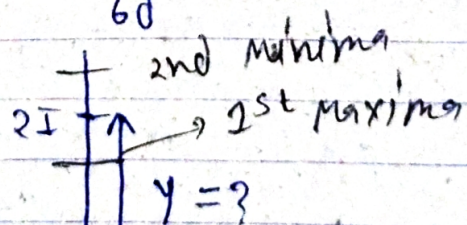 6d
2nd minima
2I
1st maxima
y = ?